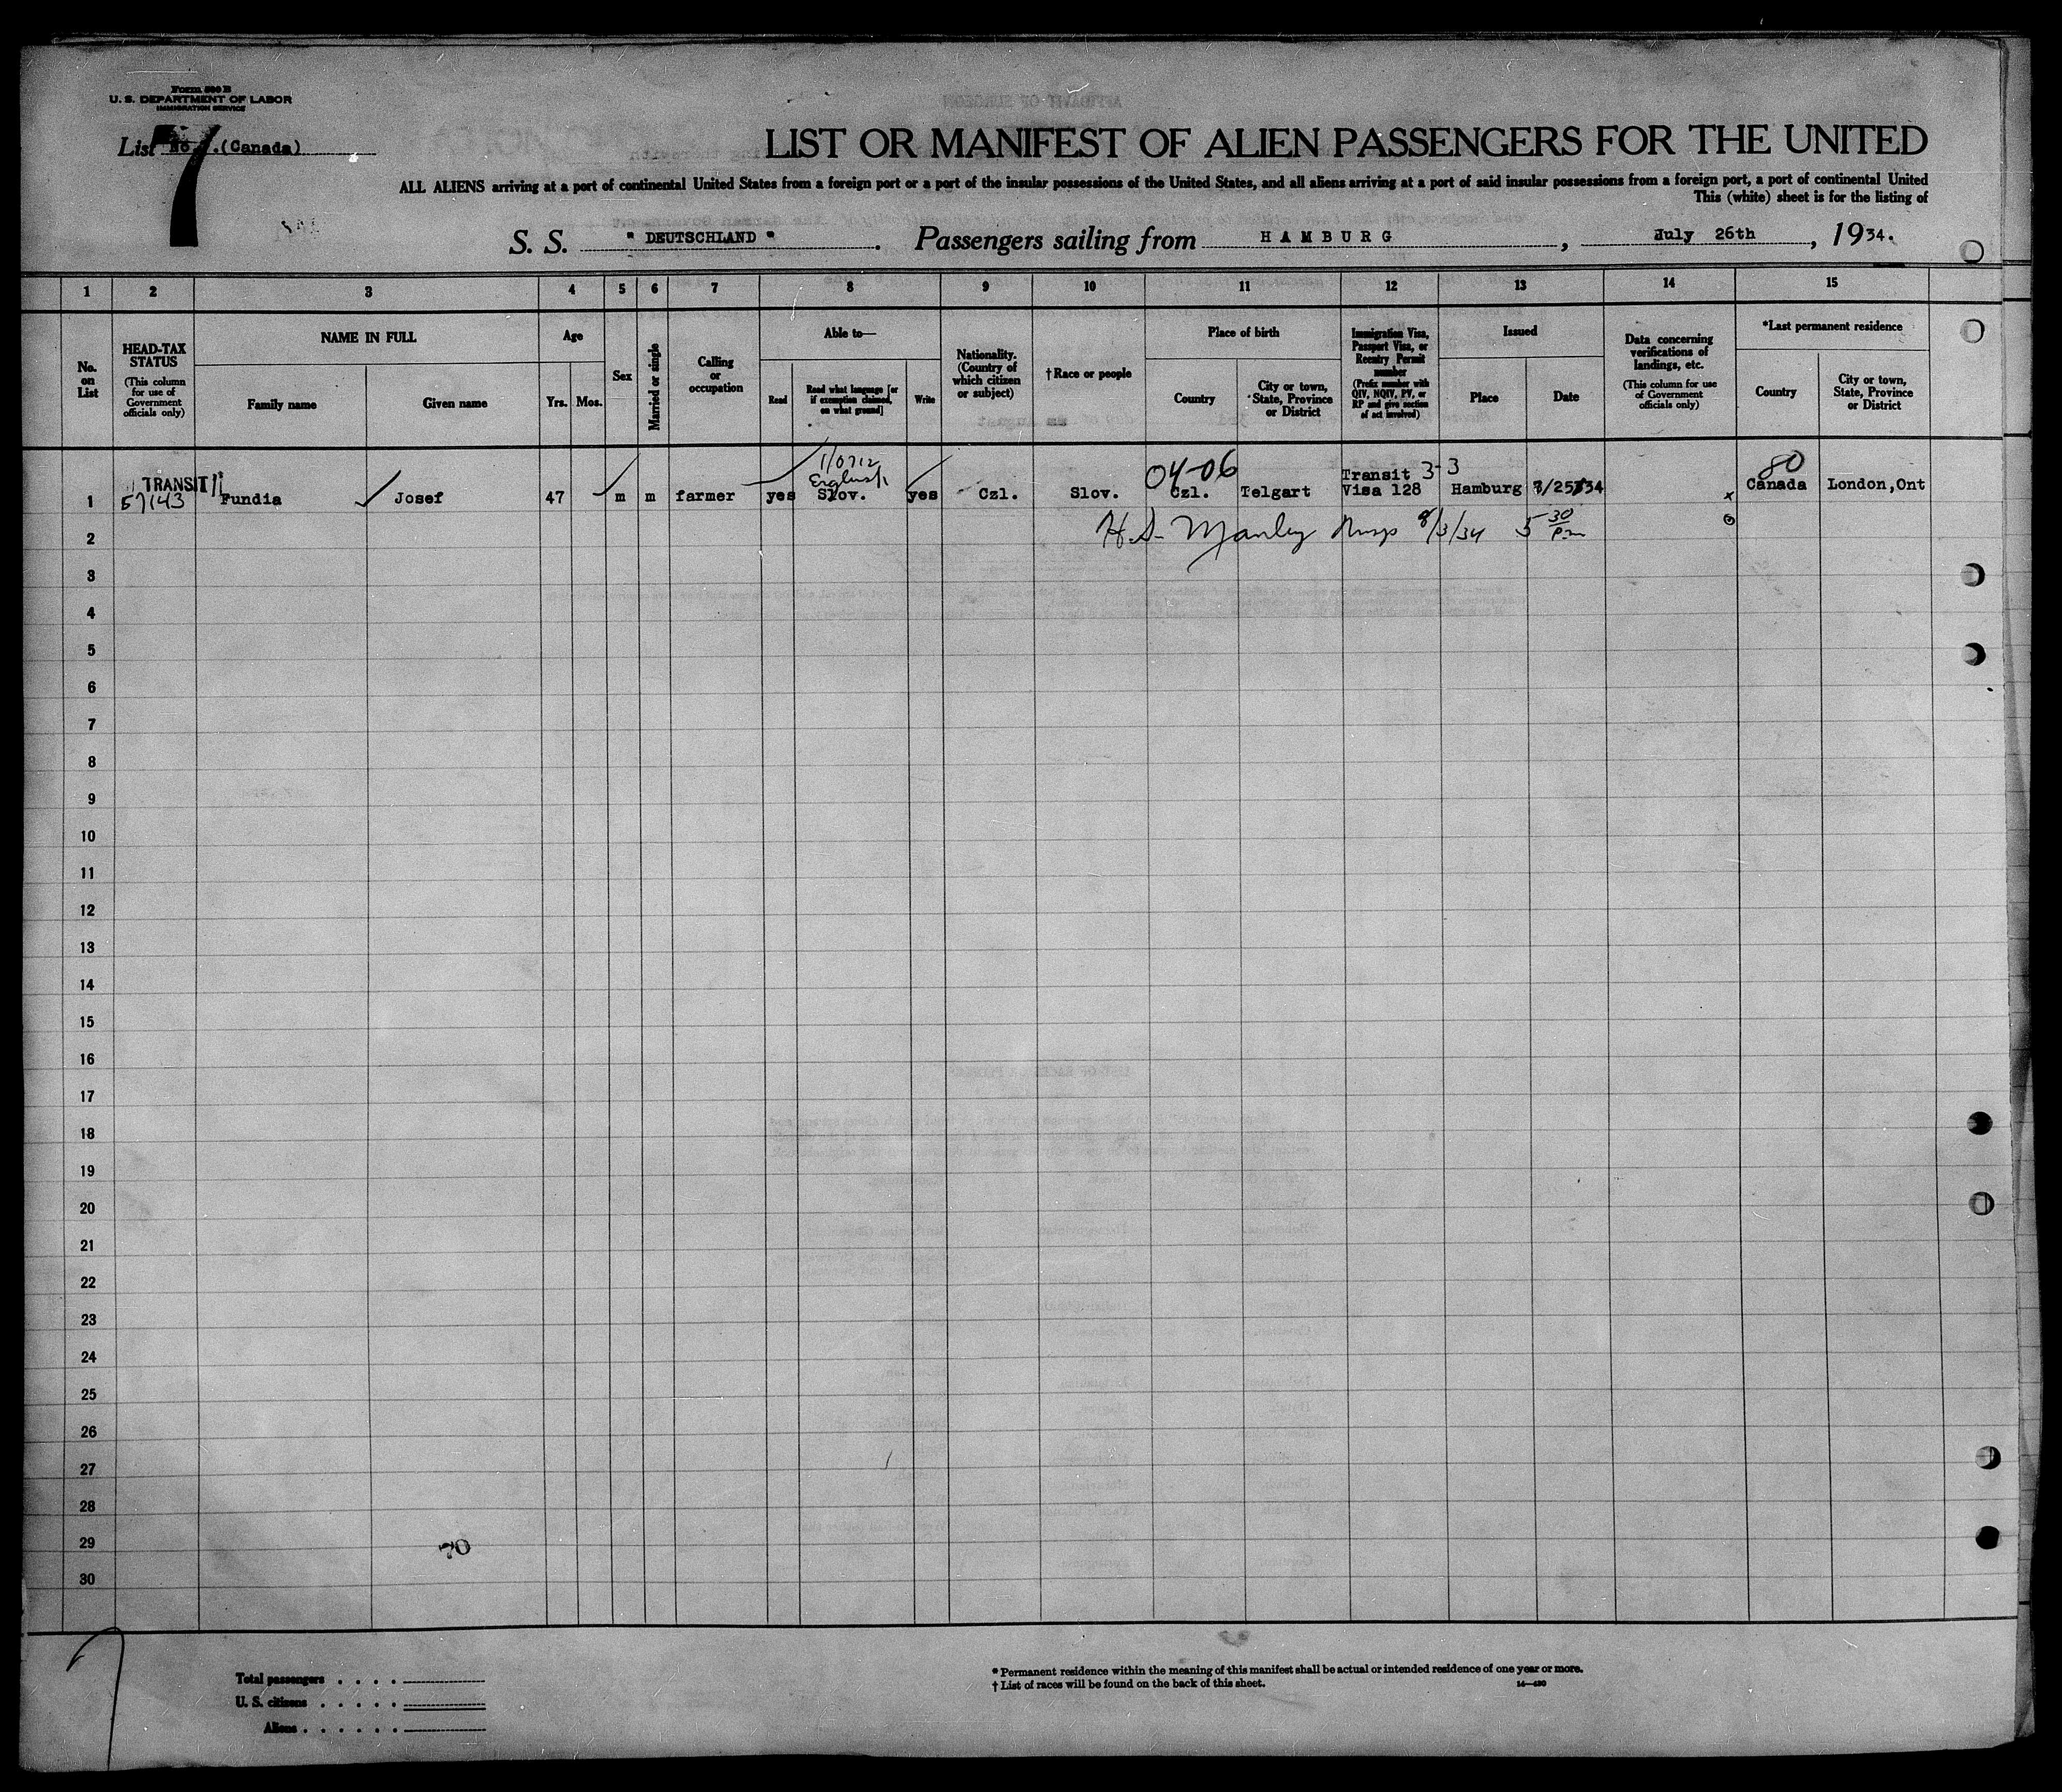 Form 500 B
U. S. DEPARTMENT OF LABOR
IMMIGRATION SERVICE
List No. 7 (Canada)
LIST OR MANIFEST OF ALIEN PASSENGERS FOR THE UNITED
ALL ALIENS arriving at a port of continental United States from a foreign port or a port of the insular possessions of the United States, and all aliens arriving at a port of said insular possessions from a foreign port, a port of continental United
This (white) sheet is for the listing of
S. S. " DEUTSCHLAND " . Passengers sailing from HAMBURG , July 26th , 1934.
1 2 3 4 5 6 7 8 9 10 11 12 13 14 15
No. on List
HEAD-TAX STATUS
(This column for use of Government officials only)
NAME IN FULL
Family name
Given name
Age
Yrs. Mos.
Sex
Married or single
Calling or occupation
Able to—
Read
Read what language [or if exemption claimed, on what ground]
Write
Nationality. (Country of which citizen or subject)
†Race or people
Place of birth
Country
City or town, State, Province or District
Immigration Visa, Passport Visa, or Reentry Permit number
(Prefix number with QIV, NQIV, PV, or RP and give section of act involved)
Issued
Place
Date
Data concerning verifications of landings, etc.
(This column for use of Government officials only)
*Last permanent residence
Country
City or town, State, Province or District
TRANSIT 1/0712 English 04-06 3-3 80
1 57143 Fundia Josef 47 m m farmer yes Slov. yes Czl. Slov. Czl. Telgart Transit Visa 128 Hamburg 7/25/34 x Canada London,Ont
2 H.S. Manley Insp 8/3/34 5 30 pm
3
4
5
6
7
8
9
10
11
12
13
14
15
16
17
18
19
20
21
22
23
24
25
26
27
28
29
30
Total passengers . . . .
U. S. citizens . . . . .
Aliens . . . . . .
* Permanent residence within the meaning of this manifest shall be actual or intended residence of one year or more.
† List of races will be found on the back of this sheet.
14—430